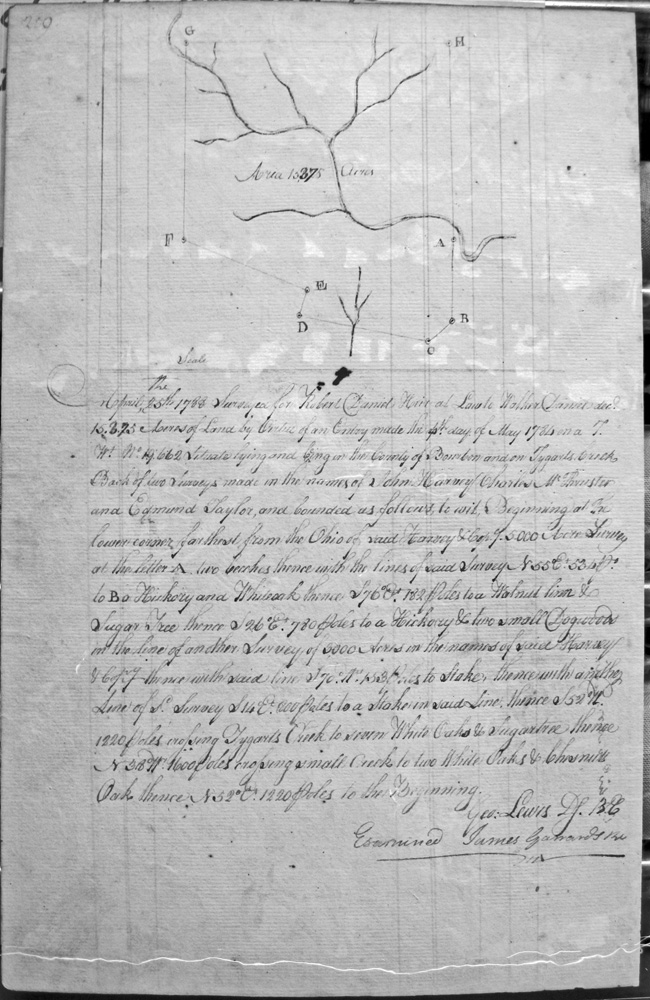 210
G
H
Area 15,375 Acres
F
A
E
D
B
C
Scale
the
April 25th 1788 Surveyed for Robert Daniel Heir at Law to Walker Daniel decd
15.375 Acres of Land by Virtue of an Entry made the 4th day of May 1784 on a T.
Wt No 19,662 Situate lying and being in the County of Bourbon and on Tygarts Creek
Back of two Surveys made in the names of John Harvey Charles
and Edmund Taylor, and bounded as follows, to wit, Beginning at the
lower corner farthest from the Ohio of said Harvey & 5000 Acre Survey
at the letter A two beeches thence with the lines of said Survey N 55 E
to B a Hickory and White oak thence S 76 Et 182 Poles to a Walnut linn &
Sugar Tree thence S 26 Et 780 Poles to a Hickory & two small Dogwoods
on the line of another Survey of 5000 Acres in the names of said Harvey
& thence with said line S 70 Wt 153 Poles to Stake, thence with another
Line of sd Survey S 14 Et 600 Poles to a Stake in said Line, thence S 52 Wt
1220 Poles crossing Tygarts Creek to seven White Oaks & Sugartree thence
N 38 Wt 1600 Poles crossing small Creek to two White Oaks & Chesnutt
Oak thence N 52 Et 1220 Poles to the Beginning.
Geo: Lewis D.S. B C
Examined James Garrard